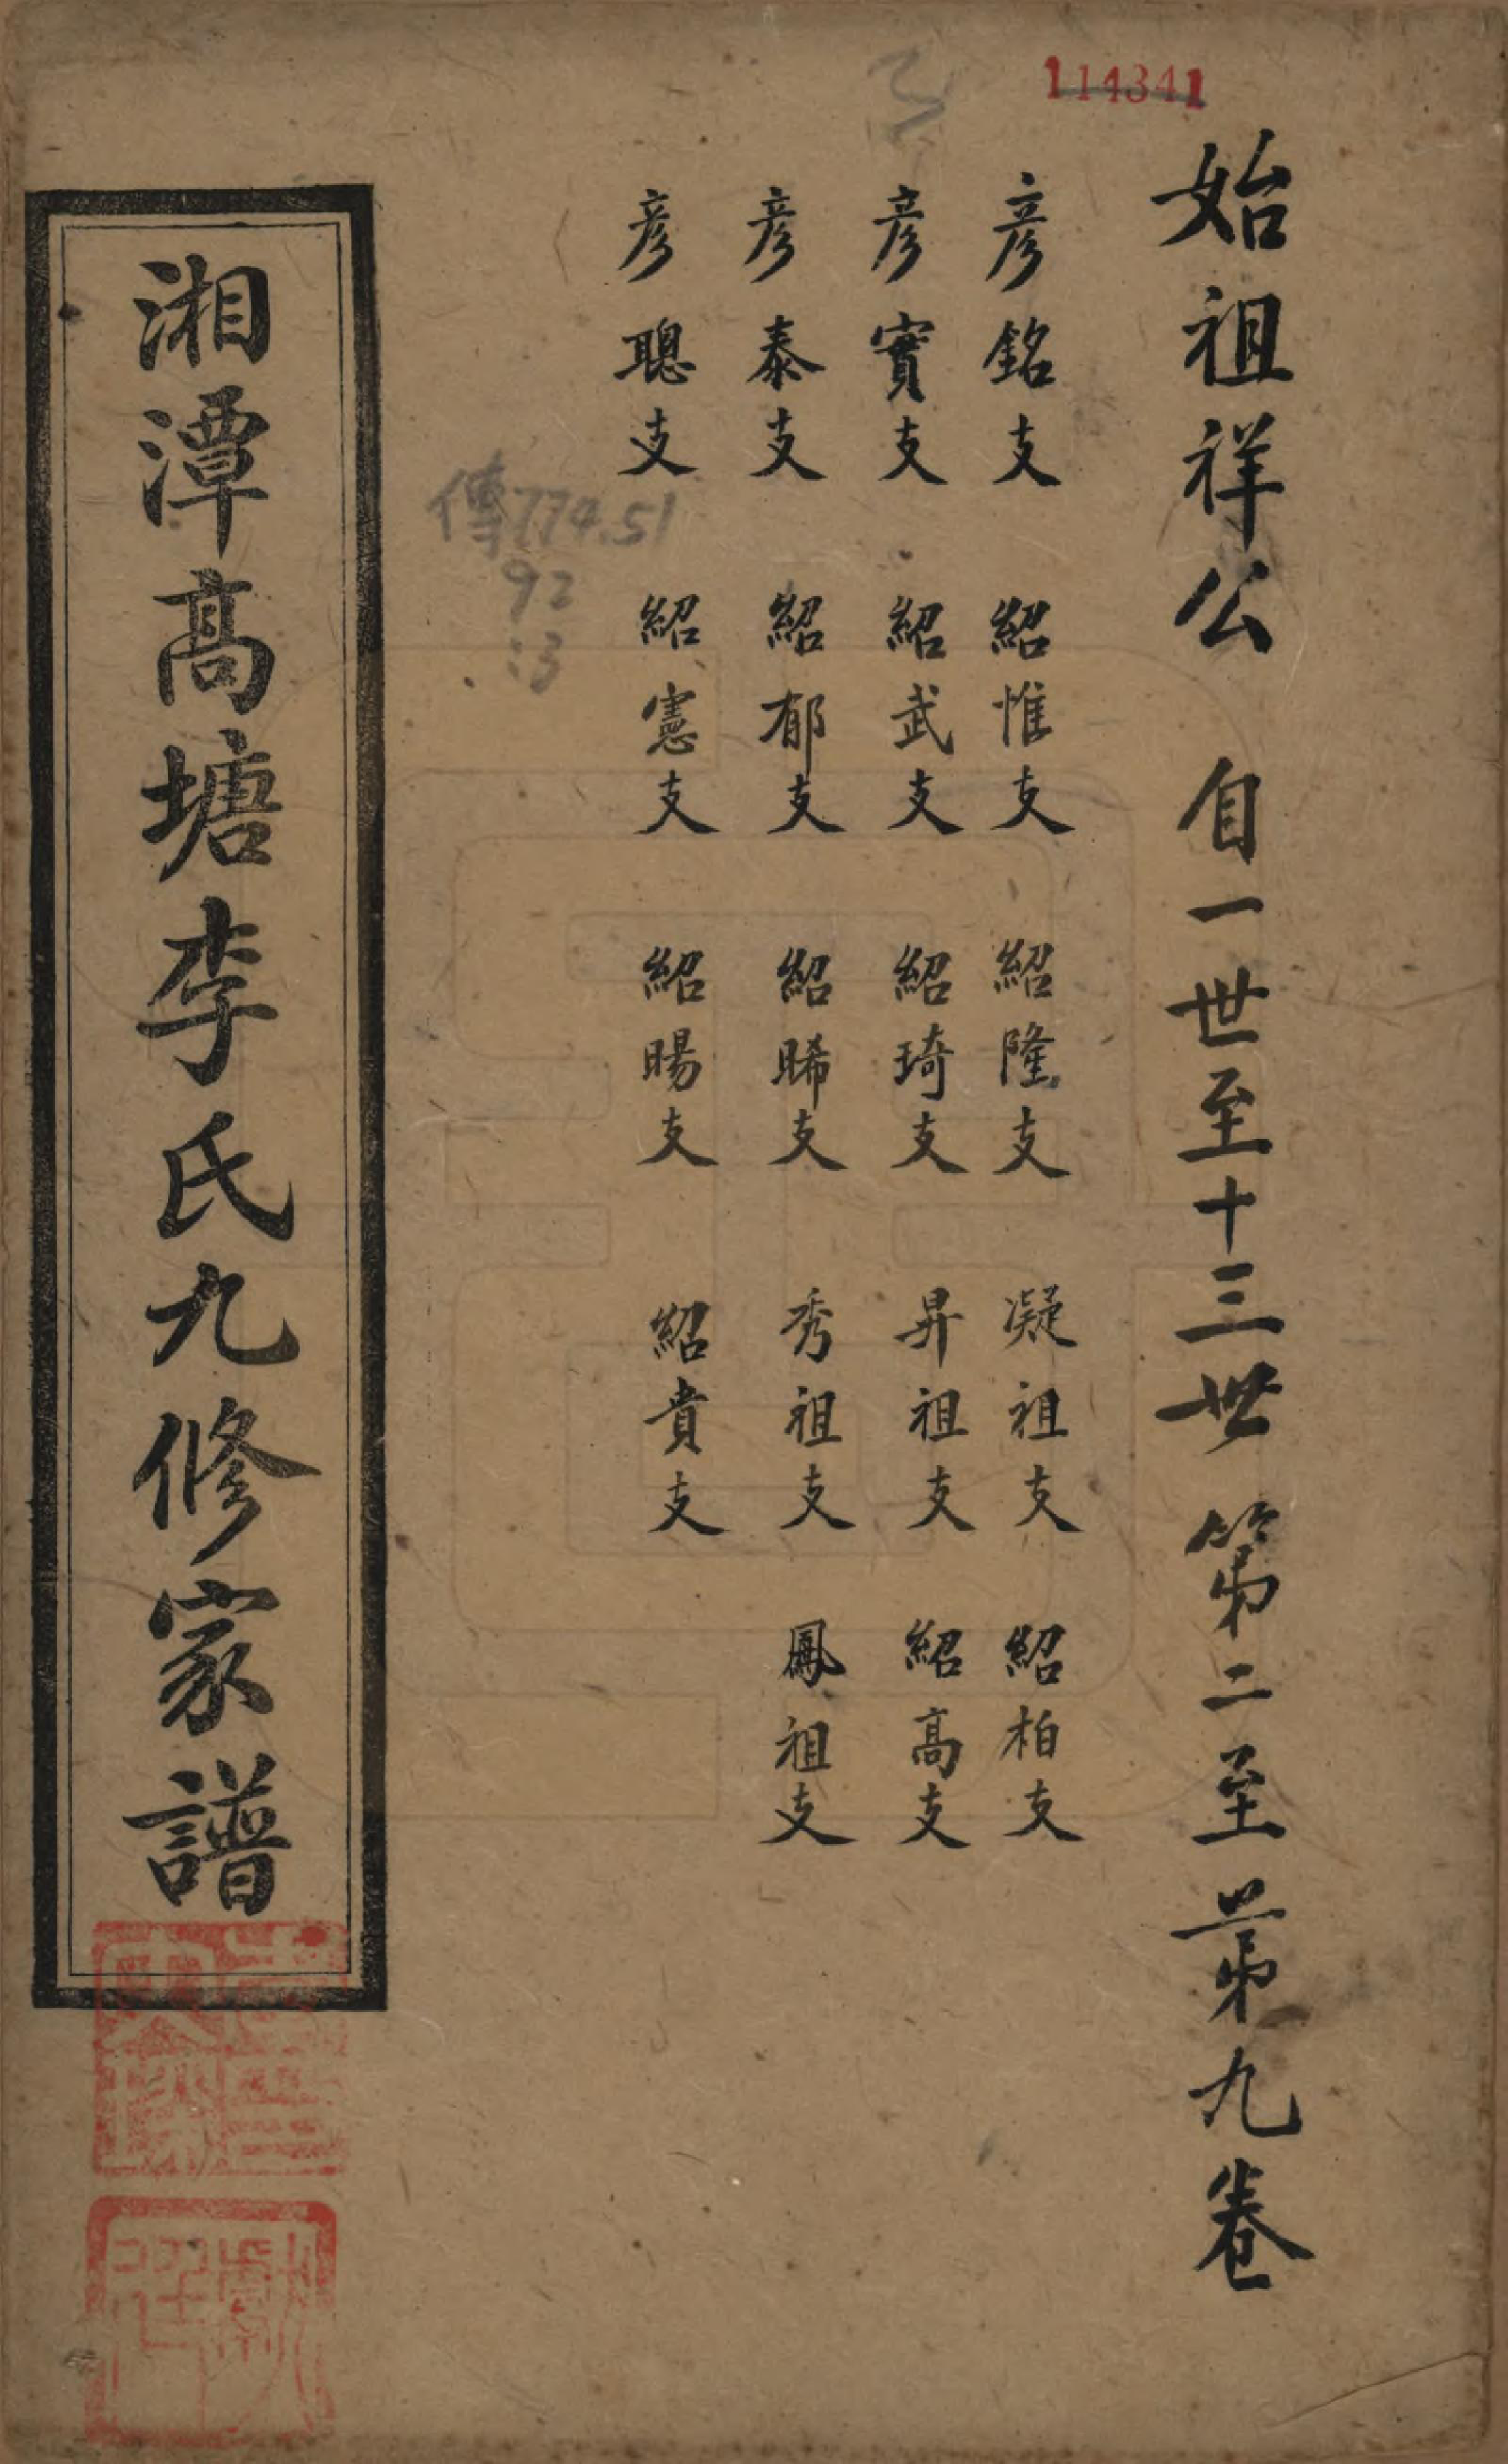 114341
始祖祥公 自一世至十三世 第二至第九卷
彥銘支 紹惟支 紹隆支 凝祖支 紹柏支
彥實支 紹武支 紹琦支 昇祖支 紹高支
彥泰支 紹郁支 紹晞支 秀祖支 鳳祖支
彥聰支 紹憲支 紹暘支 紹貴支
傳774.51
92
:13
湘潭高塘李氏九修家譜